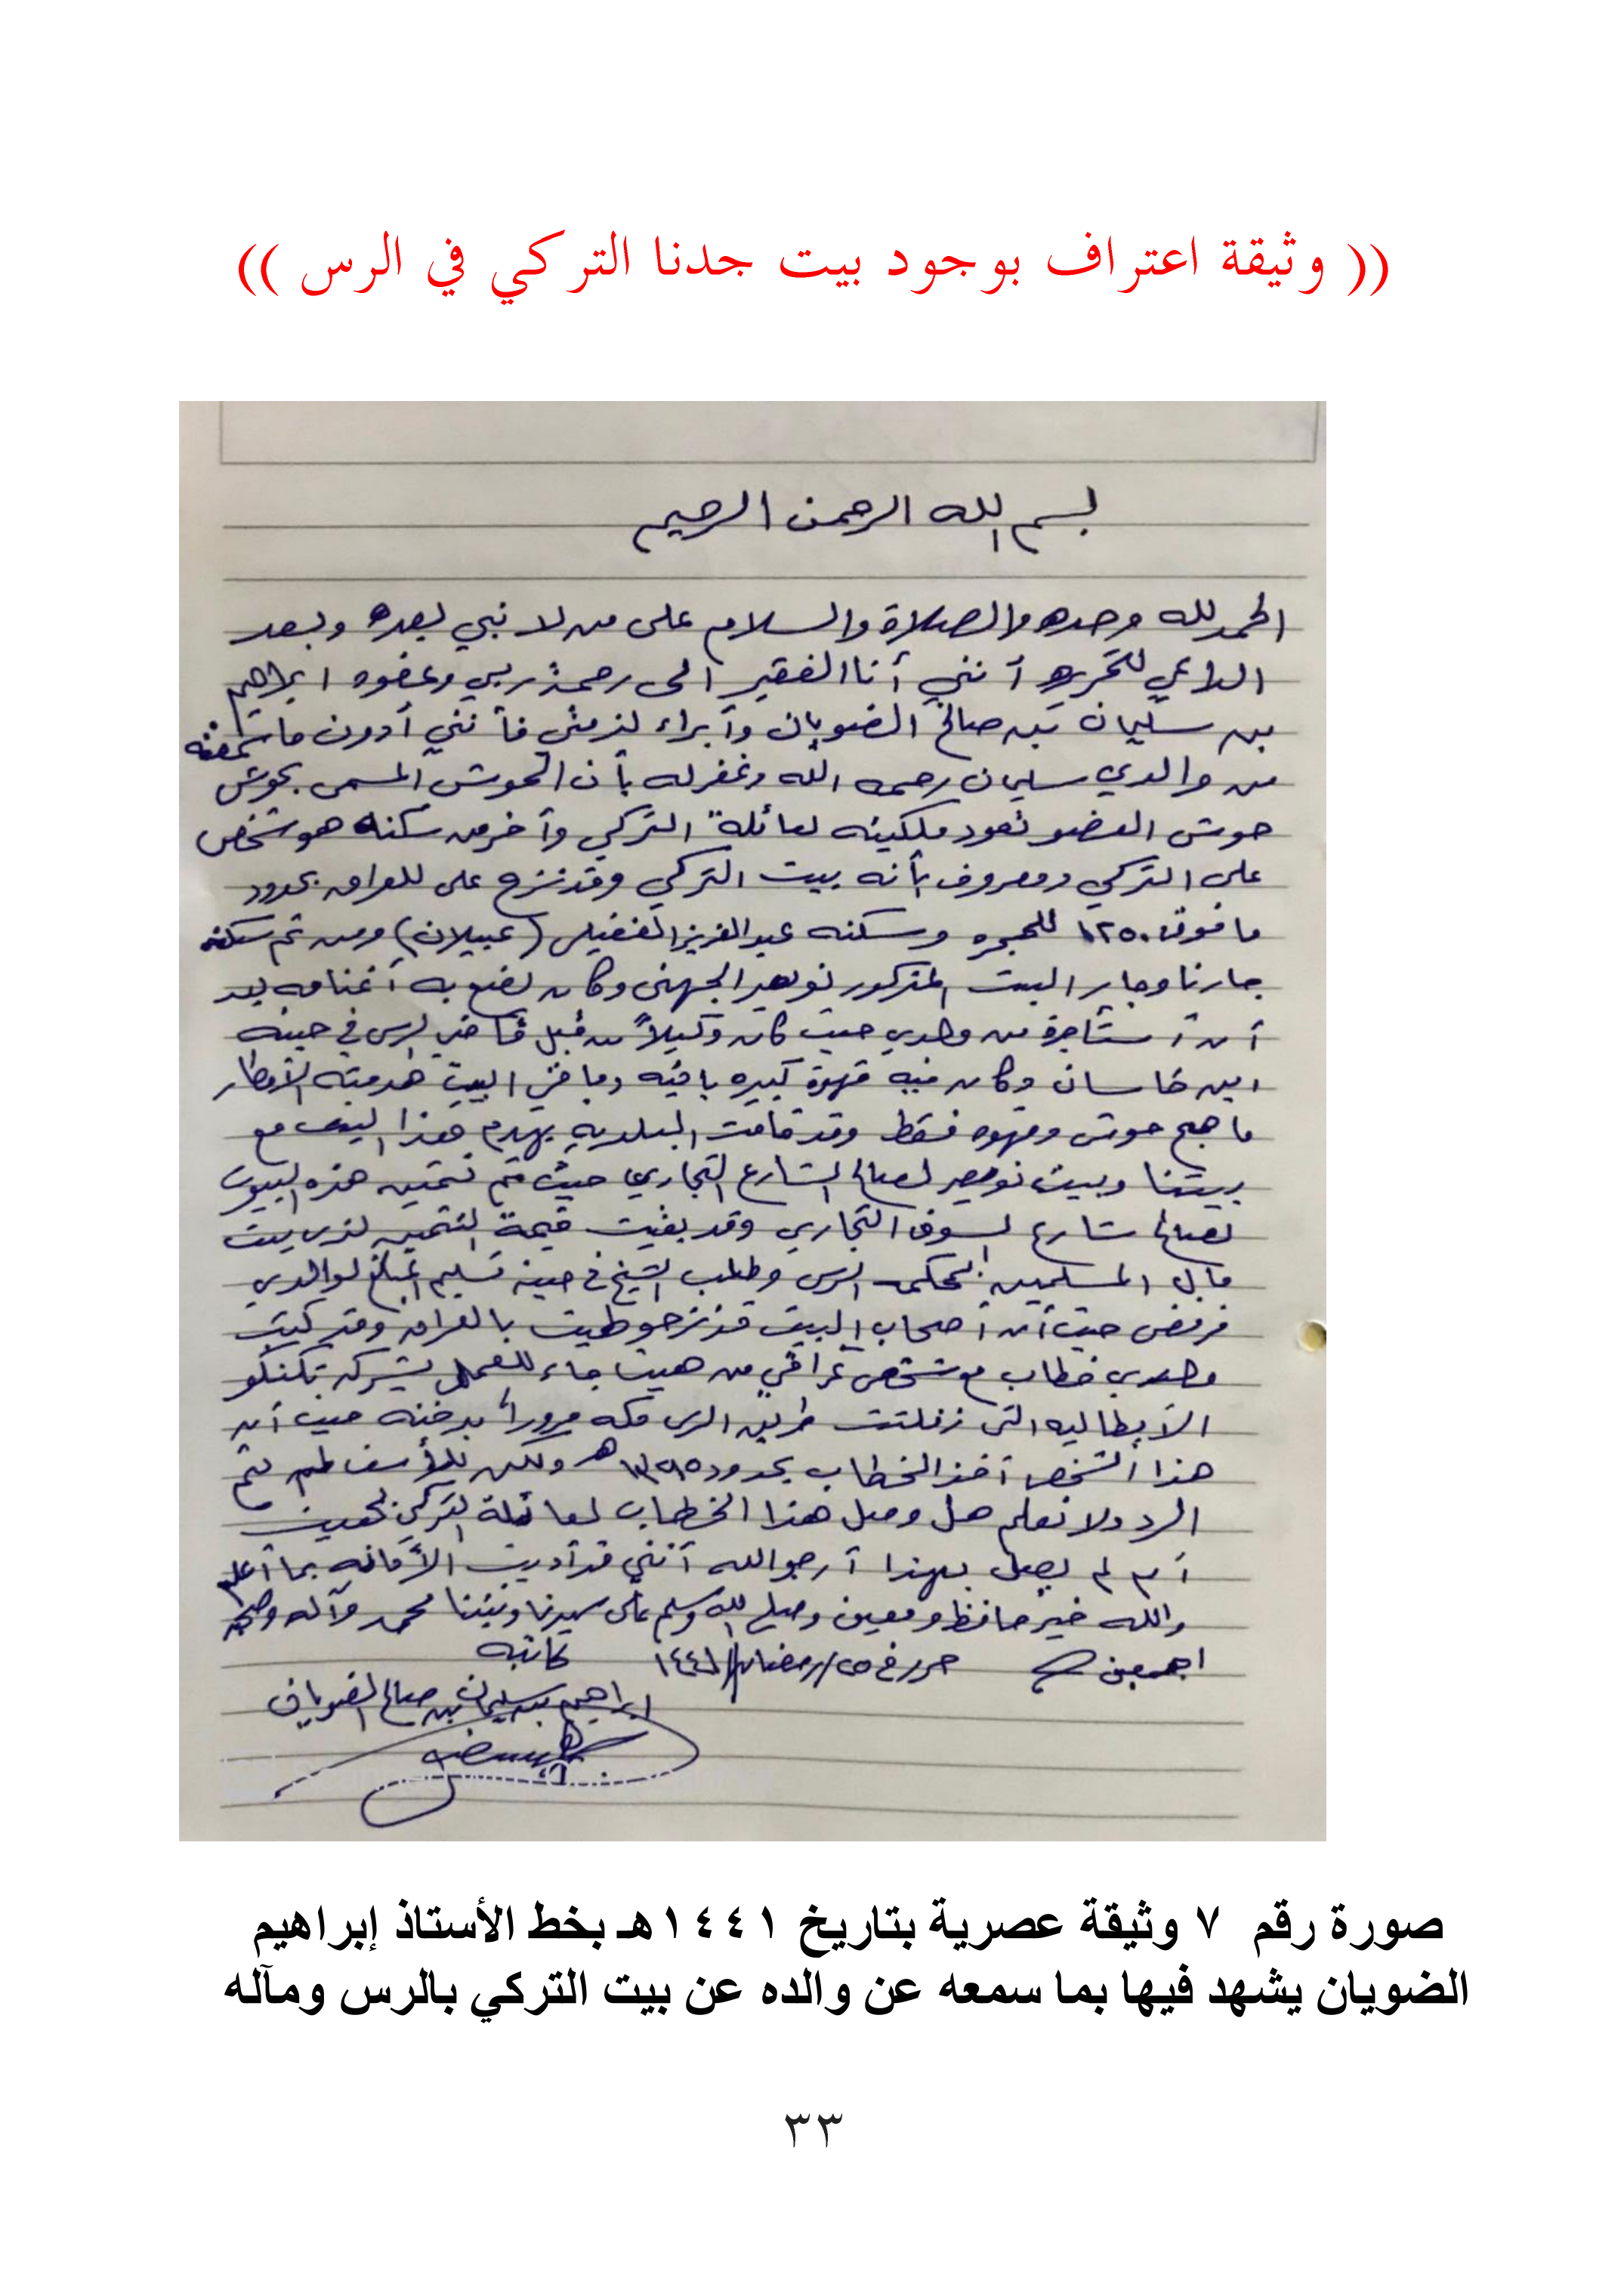 (( وثيقة اعتراف بوجود بيت جدنا التركي في الرس ))
بسم الله الرحمن الرحيم
الحمد لله وحده والصلاة والسلام على من لا نبي بعده وبعد
الداعي لتحريره أنني أنا الفقير الى رحمة ربي وعفوه ابراهيم
بن سليمان بن صالح الضويان وأبراء لذمتي فأنني أدون ما سمعته
من والدي سليمان رحمه الله وغفر له بأن الحوش المسمى بحوش
حوش العضو تعود ملكيته لعائلة التركي وآخر من سكنه هو شخص
على التركي ومعروف بأنه بيت التركي وقد نزح على للعراق بحدود
ما فوق ١٢٥٠ للهجره وسكنه عبدالعزيز الفضيلي (عبيلان) ومن ثم سكنه
جارنا وجار البيت المذكور نويصر الجهني وكان يضع به أغنامه بعد
أن أستأجره من والدي حيث كان وكيلاً من قبل قاضي الرس في حينه
ابن خاسان وكان فيه قهوة كبيره باقيه وباقي البيت هدمته الأمطار
ما هم حوش وقهوه فقط وقد قامت البلديه بهدم هذا البيت مع
بيتنا وبيت نويصر لصالح الشارع التجاري حيث تم تثمين هذه البيوت
لصالح شارع السوق التجاري وقد بقيت قيمة التثمين لدى بيت
مال المسلمين بمحكمة الرس وطلب الشيخ في حينه تسليم المبلغ لوالدي
فرفض حيث أن أصحاب البيت قد نزحو لهيت بالعراق وقد كتبت
والدي خطاب مع شخص عراقي من هيت جاء للعمل بشركة تكنكو
الأيطاليه التي زفلتت طريق الرس مكه مرورا بدخنه حيث أن
هذا الشخص أخذ الخطاب بحدود ١٣٩٥هـ ولكن للأسف لم يتم
الرد ولا نعلم هل وصل هذا الخطاب لعائلة التركي بهيت
أم لم يصل بهذا أرجو الله أنني قد أديت الأمانه بما أعلم
والله خير حافظ ومعين وصلى الله وسلم على سيدنا ونبينا محمد وآله وصحبه
اجمعين حرر في ٢٥/رمضان/١٤٤١ كاتبه
ابراهيم بن سليمان بن صالح الضويان
صورة رقم ٧ وثيقة عصرية بتاريخ ١٤٤١هـ بخط الأستاذ إبراهيم
الضويان يشهد فيها بما سمعه عن والده عن بيت التركي بالرس ومآله
٣٣